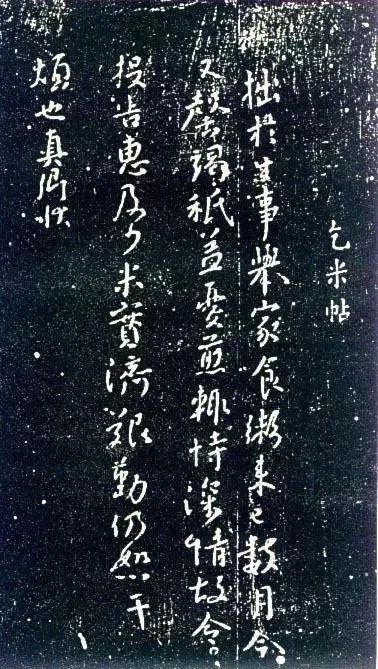 乞米帖
拙於生事舉家食粥來已數月今
又罄竭秖益憂煎輙恃深情故令
投告惠及少米實濟艱勤仍恕干
煩也真卿狀